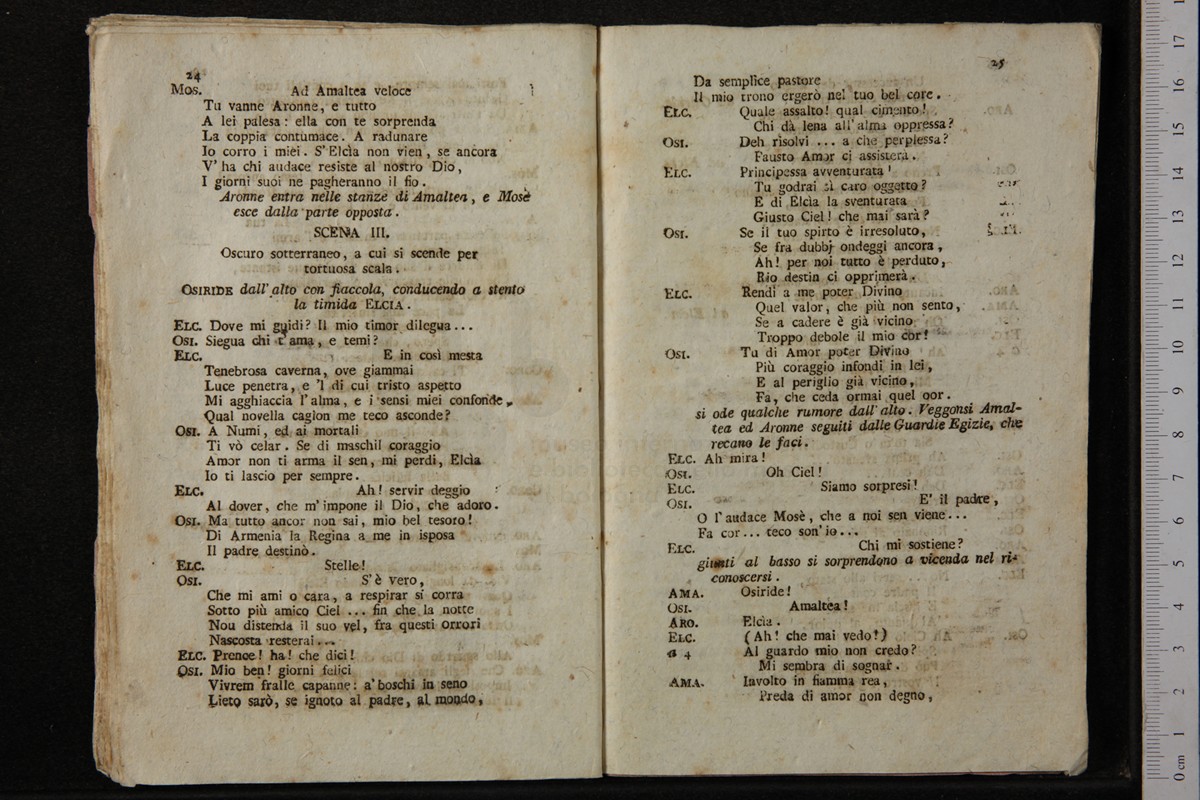 24
Mos. Ad Amaltea veloce
Tu vanne Aronne, e tutto
A lei palesa: ella con te sorprenda
La coppia contumace. A radunare
Io corro i miei. S' Elcìa non vien, se ancora
V' ha chi audace resiste al nostro Dio,
I giorni suoi ne pagheranno il fio.
Aronne entra nelle stanze di Amaltea, e Mosè
esce dalla parte opposta.
SCENA III.
Oscuro sotterraneo, a cui si scende per
tortuosa scala.
OSIRIDE dall' alto con fiaccola, conducendo a stento
la timida ELCIA.
ELC. Dove mi guidi? Il mio timor dilegua...
OSI. Siegua chi t' ama, e temi?
ELC. E in così mesta
Tenebrosa caverna, ove giammai
Luce penetra, e 'l di cui tristo aspetto
Mi agghiaccia l' alma, e i sensi miei confonde,
Qual novella cagion me teco asconde?
OSI. A Numi, ed ai mortali
Ti vò celar. Se di maschil coraggio
Amor non ti arma il sen, mi perdi, Elcìa
Io ti lascio per sempre.
ELC. Ah! servir deggio
Al dover, che m' impone il Dio, che adoro.
OSI. Ma tutto ancor non sai, mio bel tesoro!
Di Armenia la Regina a me in isposa
Il padre destinò.
ELC. Stelle!
OSI. S' è vero,
Che mi ami o cara, a respirar si corra
Sotto più amico Ciel ... fin che la notte
Nou distenda il suo vel, fra questi orrori
Nascosta resterai...
ELC. Prence! ha! che dici!
OSI. Mio ben! giorni felici
Vivrem fralle capanne: a' boschi in seno
Lieto sarò, se ignoto al padre, al mondo,
25
Da semplice pastore
Il mio trono ergerò nel tuo bel core.
ELC. Quale assalto! qual cimento!
Chi dà lena all' alma oppressa?
OSI. Deh risolvi ... a che perplessa?
Fausto Amor ci assisterà.
ELC. Principessa avventurata!
Tu godrai sì caro oggetto?
E di Elcìa la sventurata
Giusto Ciel! che mai sarà?
OSI. Se il tuo spirto è irresoluto,
Se fra dubbj ondeggi ancora,
Ah! per noi tutto è perduto,
Rio destin ci opprimerà.
ELC. Rendi a me poter Divino
Quel valor, che più non sento,
Se a cadere è già vicino
Troppo debole il mio cor!
OSI. Tu di Amor poter Divino
Più coraggio infondi in lei,
E al periglio già vicino,
Fa, che ceda ormai quel oor.
si ode qualche rumore dall' alto. Veggonsi Amal-
tea ed Aronne seguiti dalle Guardie Egizie, che
recano le faci.
ELC. Ah mira!
OSI. Oh Ciel!
ELC. Siamo sorpresi!
OSI. E' il padre,
O l' audace Mosè, che a noi sen viene...
Fa cor... teco son' io...
ELC. Chi mi sostiene?
giunti al basso si sorprendono a vicenda nel ri-
conoscersi.
AMA. Osiride!
OSI. Amaltea!
ARO. Elcìa.
ELC. (Ah! che mai vedo!)
a 4 Al guardo mio non credo?
Mi sembra di sognar.
AMA. Iavolto in fiamma rea,
Preda di amor non degno,
0 cm 1 2 3 4 5 6 7 8 9 10 11 12 13 14 15 16 17